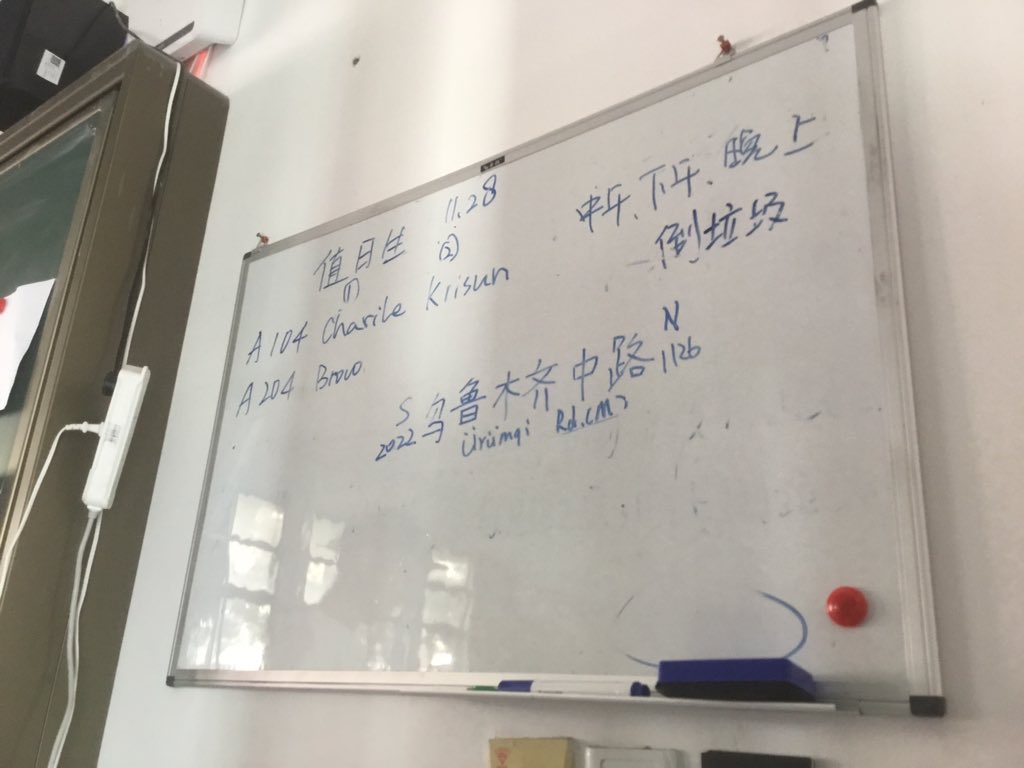 值日生 11.28
(1) (2)
A104 Charile Kiisun
A204 Brovo
中午、下午、晚上
倒垃圾
S 乌鲁木齐中路 N
2022 1126
Ürümqi Rd.(M)